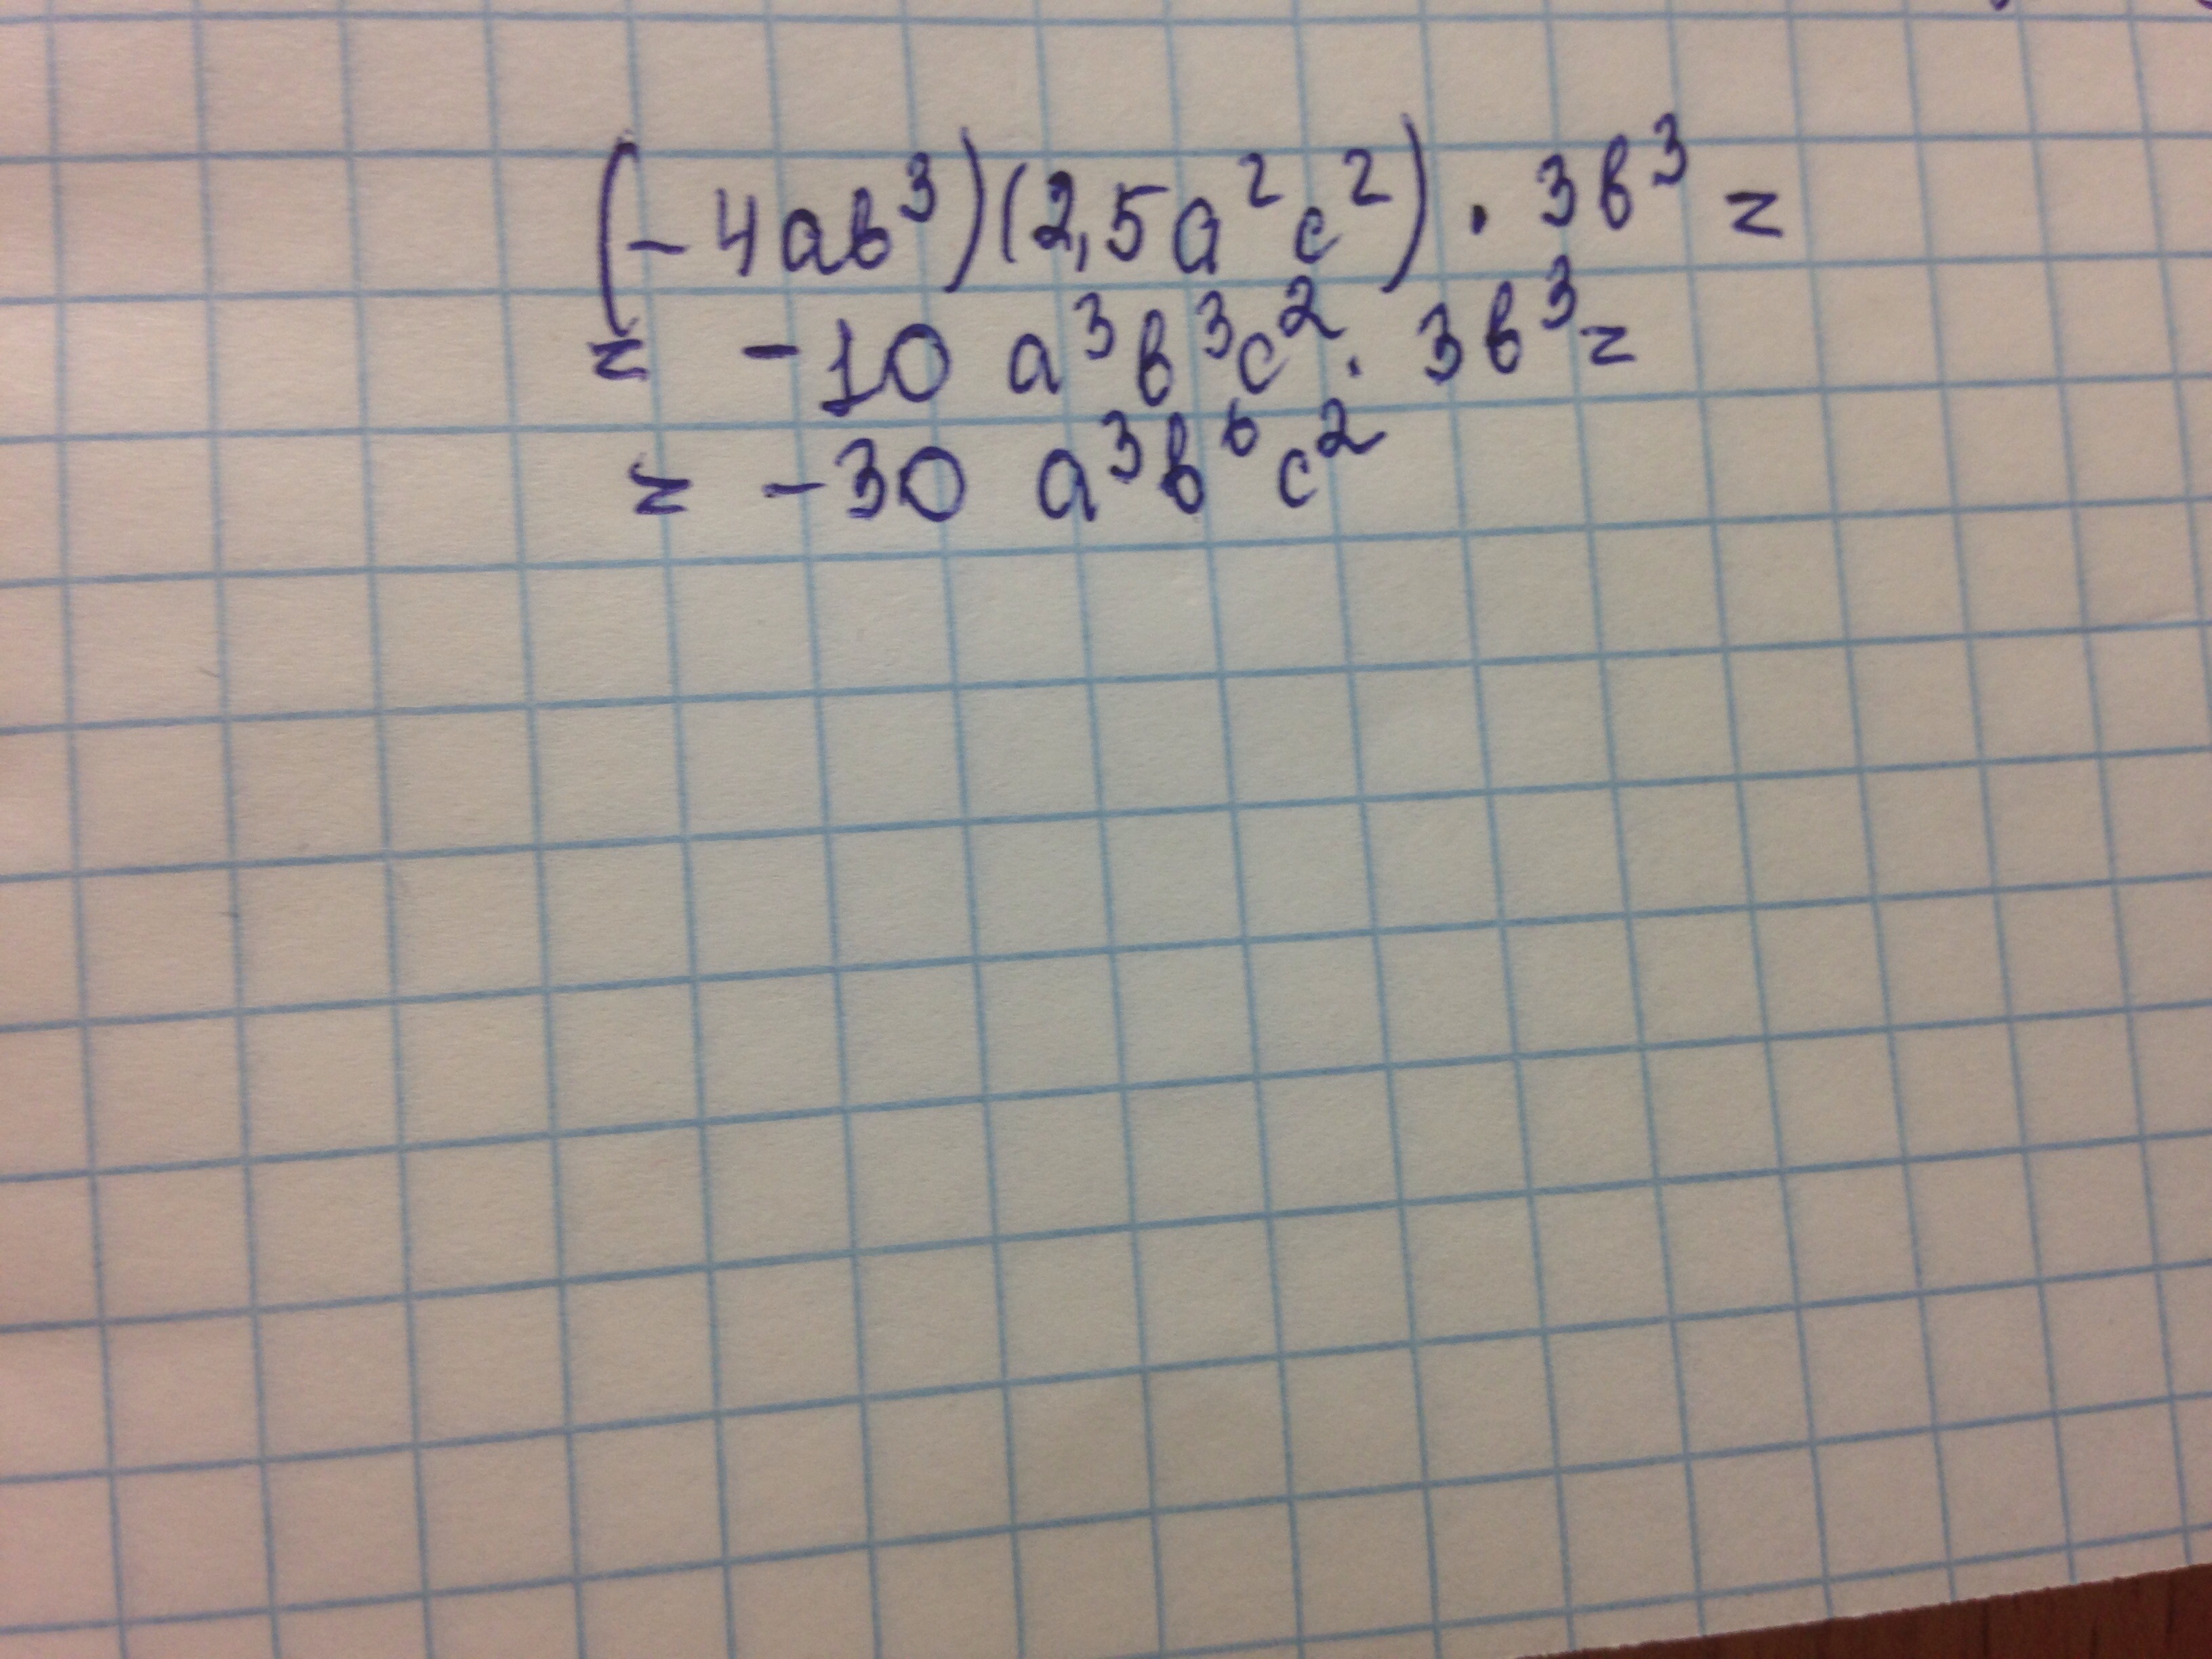 (-4ab³)(2,5a²c²) · 3b³ =
= -10 a³b³c² · 3b³ =
= -30 a³b⁶c²